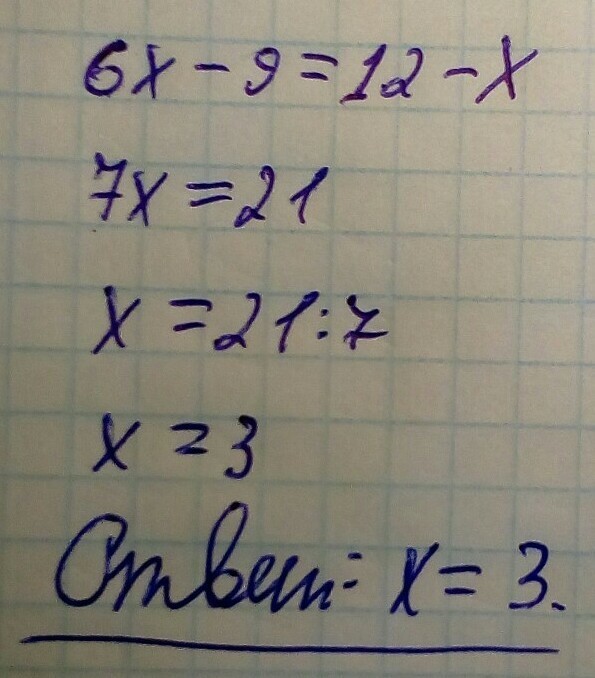 6x - 9 = 12 - x
7x = 21
x = 21 : 7
x = 3
Ответ: x = 3.